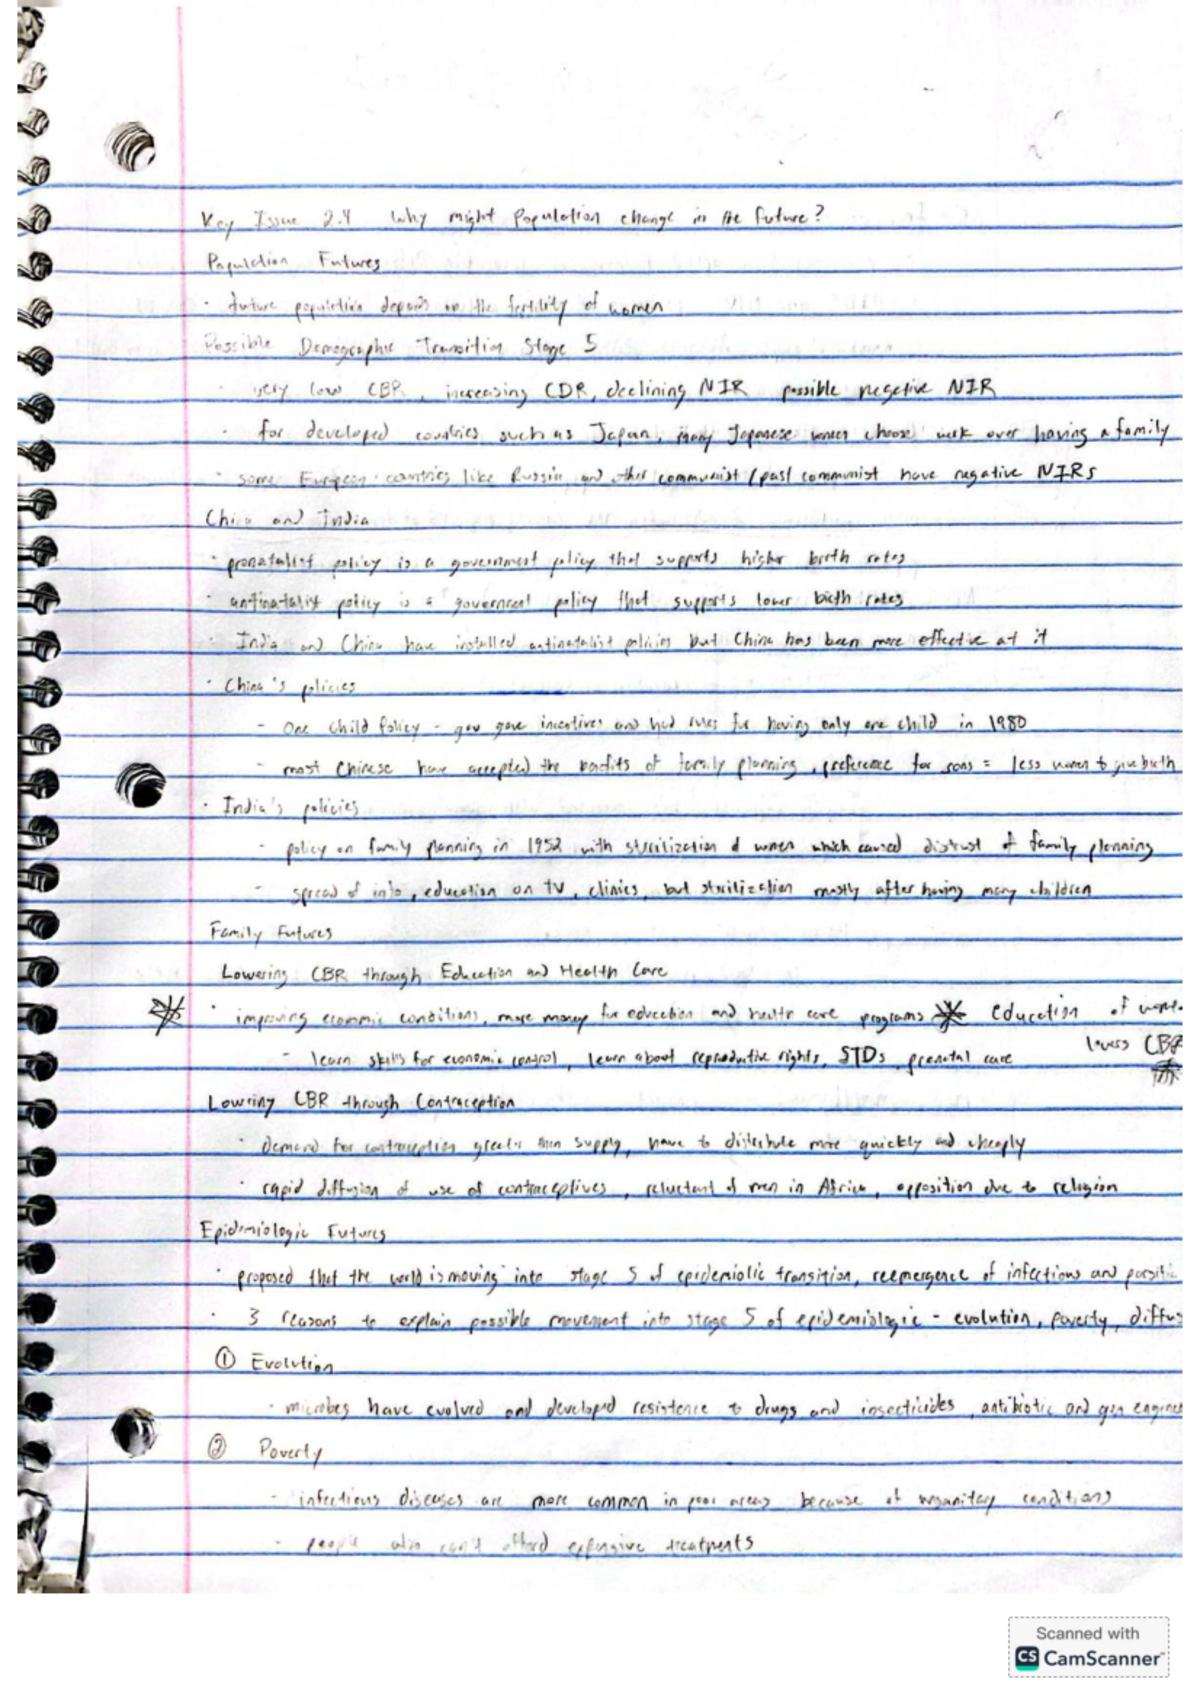 Key Issue 2.4 Why might Population change in the future?
Population Futures
· future population depends on the fertility of women
Possible Demographic Transition Stage 5
· very low CBR, increasing CDR, declining NIR possible negative NIR
· for developed countries such as Japan, many Japanese women choose work over having a family
· some European countries like Russia and other communist / past communist have negative NIRs
China and India
· pronatalist policy is a government policy that supports higher birth rates
· antinatalist policy is a government policy that supports lower birth rates
India and China have installed antinatalist policies but China has been more effective at it
· China's policies
- One Child Policy - gov gave incentives and had rules for having only one child in 1980
- most Chinese have accepted the benefits of family planning, preference for sons = less women to give birth
· India's policies
- policy on family planning in 1952 with sterilization of women which caused distrust of family planning
- spread of info, education on TV, clinics, but sterilization mostly after having many children
Family Futures
Lowering CBR through Education and Health Care
· improving economic conditions, more money for education and health care programs Education of women
lowers CBR
- learn skills for economic control, learn about reproductive rights, STDs, prenatal care
Lowring CBR through Contraception
· demand for contraception greater than supply, have to distribute more quickly and cheaply
· rapid diffusion of use of contraceptives, reluctant of men in Africa, opposition due to religion
Epidemiologic Futures
· proposed that the world is moving into stage 5 of epidemiolic transition, reemergence of infections and parsitic
· 3 reasons to explain possible movement into stage 5 of epidemiologic - evolution, poverty, diffus
① Evolution
· microbes have evolved and developed resistence to drugs and insecticides, antibiotic and gen engineer
② Poverty
- infectious diseases are more common in poor areas because of unsanitary conditions
- people also can't afford expensive treatments
Scanned with
CS CamScanner